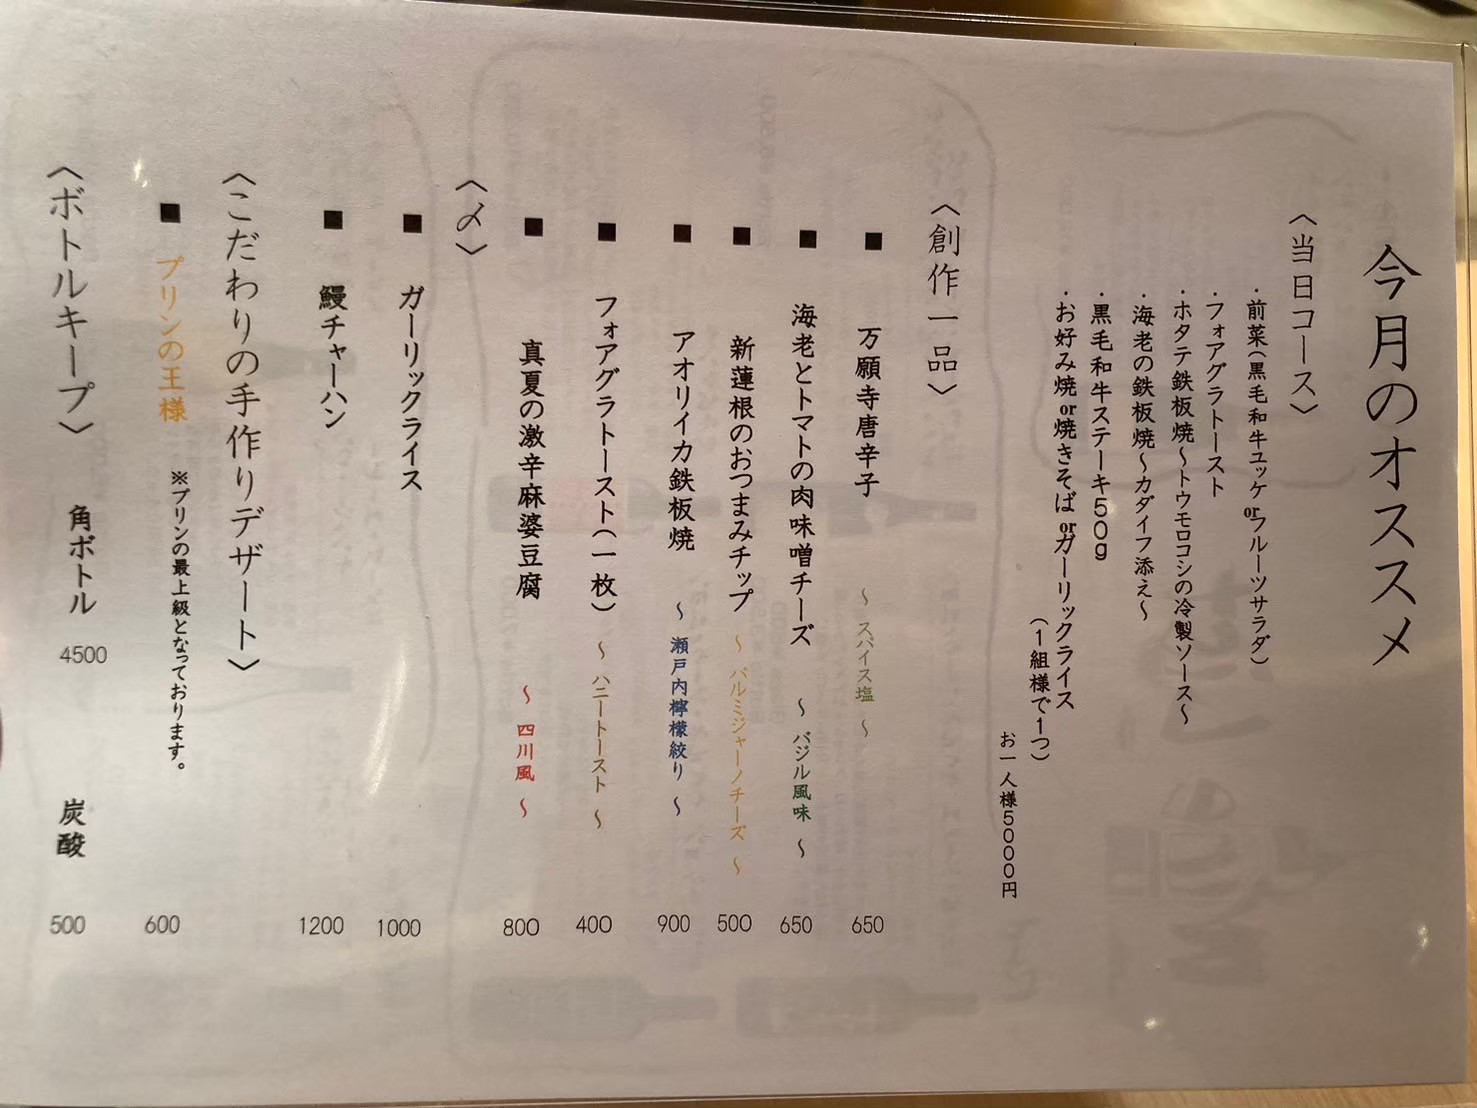 今月のオススメ
〈当日コース〉
・前菜(黒毛和牛ユッケorフルーツサラダ)
・フォアグラトースト
・ホタテ鉄板焼～トウモロコシの冷製ソース～
・海老の鉄板焼～カダイフ添え～
・黒毛和牛ステーキ50g
・お好み焼or焼きそばorガーリックライス
(1組様で1つ)
お一人様5000円
〈創作一品〉
■ 万願寺唐辛子 ～ スパイス塩 ～ 650
■ 海老とトマトの肉味噌チーズ ～ バジル風味 ～ 650
■ 新蓮根のおつまみチップ ～ パルミジャーノチーズ ～ 500
■ アオリイカ鉄板焼 ～ 瀬戸内檸檬絞り ～ 900
■ フォアグラトースト(一枚) ～ ハニートースト ～ 400
■ 真夏の激辛麻婆豆腐 ～ 四川風 ～ 800
〈〆〉
■ ガーリックライス 1000
■ 鰻チャーハン 1200
〈こだわりの手作りデザート〉
■ プリンの王様 ※プリンの最上級となっております。 600
〈ボトルキープ〉 角ボトル 4500 炭酸 500